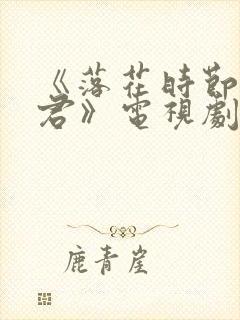 《落花時節
君》電視劇
鹿青崖